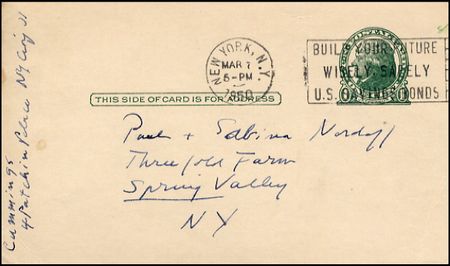 NEW YORK, N.Y.
MAR 7
5-PM
1950
BUILD YOUR FUTURE
WISELY, SAFELY
U.S. SAVINGS BONDS
THIS SIDE OF CARD IS FOR ADDRESS
Paul + Sabina Nordoff
Threefold Farm
Spring Valley
NY
Cummings
4 Patchin Place NY City 11